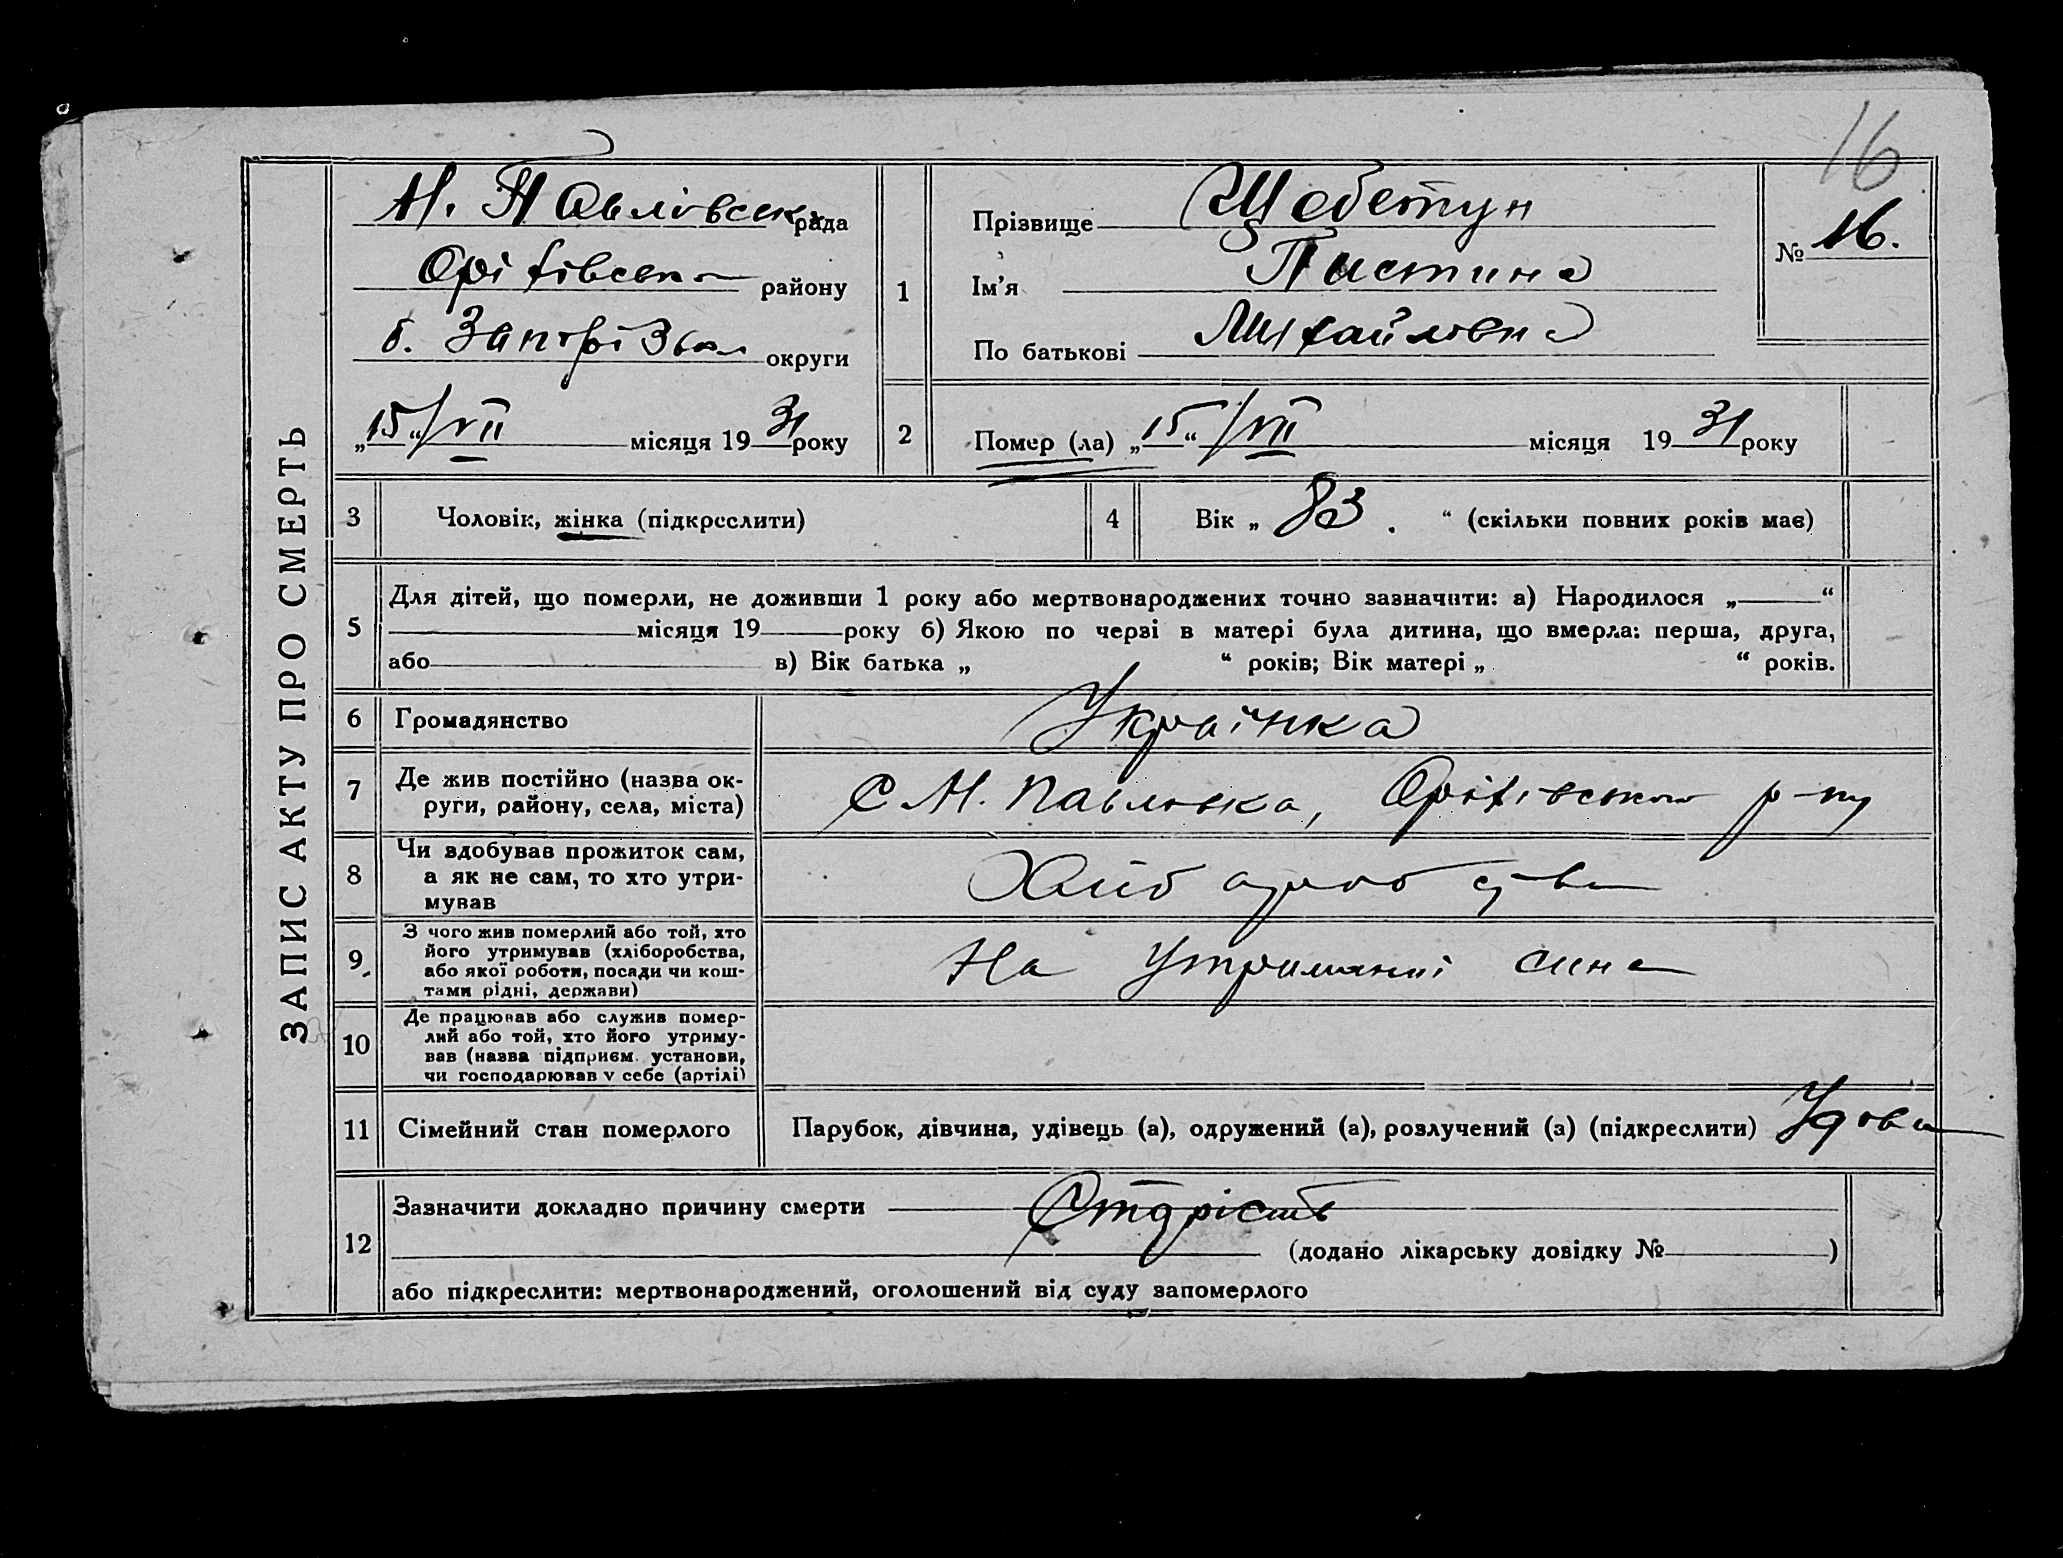 16
ЗАПИС АКТУ ПРО СМЕРТЬ
Н. Павлівська рада
Оріхівськ району
б. Запорізьк округи
„15“ / VII місяця 1931 року
1
Прізвище Щебетун
Ім'я Пистина
По батькові Михайловна
№ 16.
2
Помер (ла) „15“ / VII місяця 1931 року
3
Чоловік, жінка (підкреслити)
4
Вік „ 83. “ (скільки повних років має)
5
Для дітей, що померли, не доживши 1 року або мертвонароджених точно зазначити: а) Народилося „ “
місяця 19 року б) Якою по черзі в матері була дитина, що вмерла: перша, друга,
або в) Вік батька „ “ років; Вік матері „ “ років.
6
Громадянство Українка
7
Де жив постійно (назва ок-
руги, району, села, міста)
С Н. Павловка, Оріхівського р-ну
8
Чи здобував прожиток сам,
а як не сам, то хто утри-
мував
9
З чого жив померлий або той, хто
його утримував (хліборобства,
або якої роботи, посади чи кош-
тами рідні, держави)
На Утриманні сина
10
Де працював або служив помер-
лий або той, хто його утриму-
вав (назва підприєм. установи,
чи господарював у себе (артілі)
11
Сімейний стан померлого
Парубок, дівчина, удівець (а), одружений (а), розлучений (а) (підкреслити) Удова
12
Зазначити докладно причину смерти Старість
(додано лікарську довідку № )
або підкреслити: мертвонароджений, оголошений від суду запомерлого